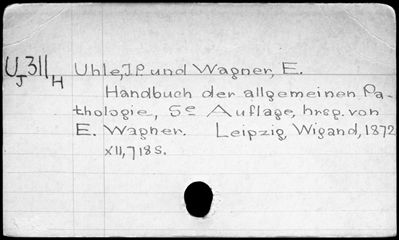 U J 311 H Uhle, J.P. und Wagner, E.
Handbuch der allgemeinen Pa-
thologie, 5e Auflage, hrsg. von
E. Wagner. Leipzig, Wigand, 1872
XII, 718 S.